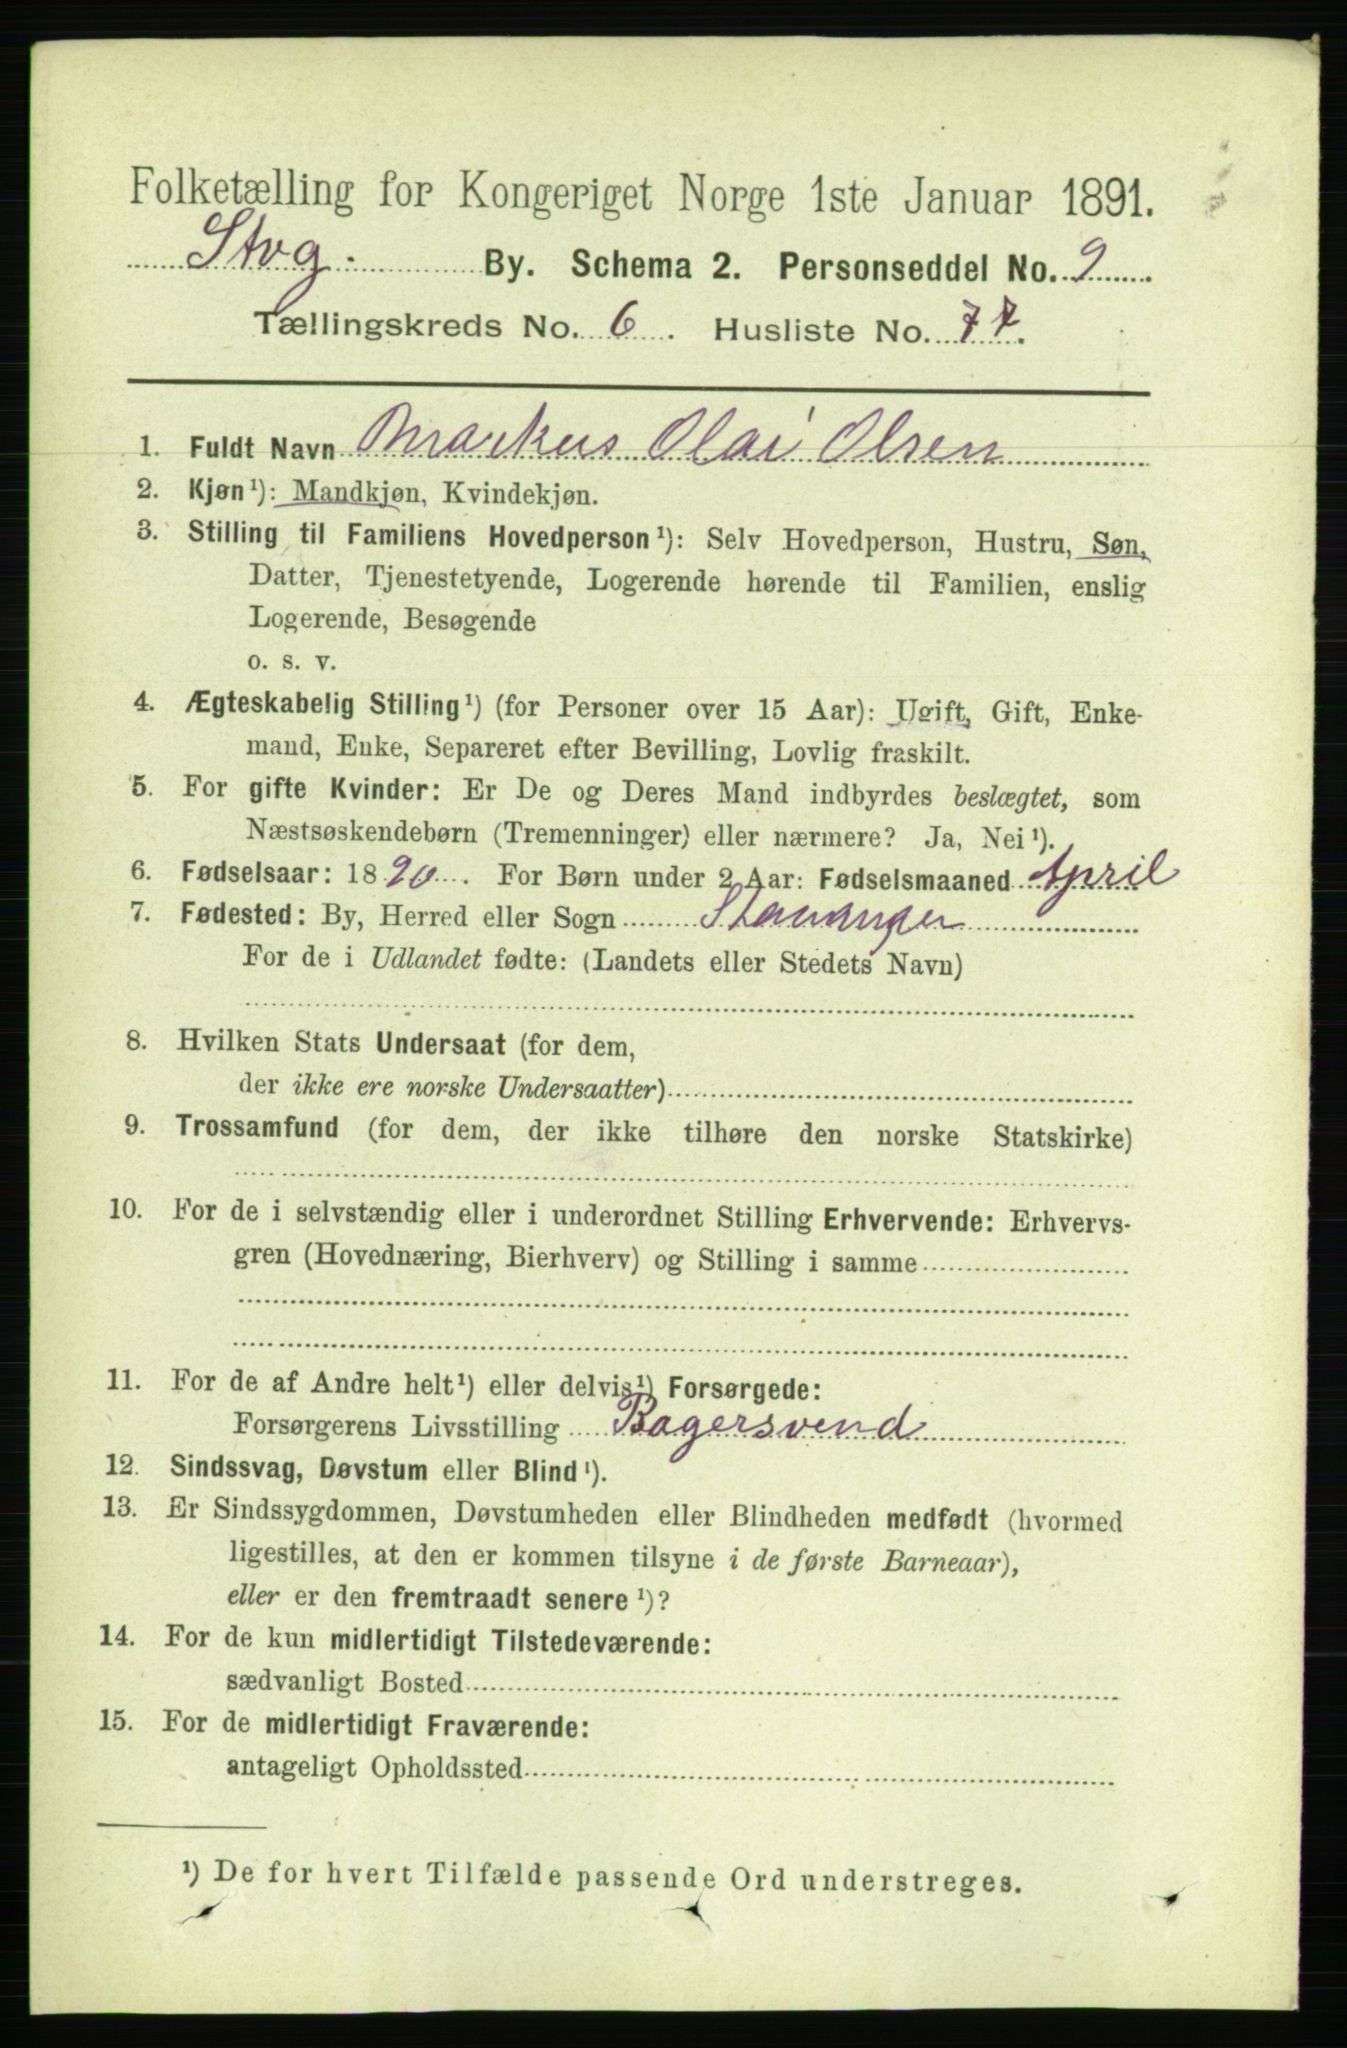 Folketælling for Kongeriget Norge 1ste Januar 1891.
Stvg. By. Schema 2. Personseddel No. 9
Tællingskreds No. 6. Husliste No. 77.
1. Fuldt Navn Markus Olai Olsen
2. Kjøn¹): Mandkjøn, Kvindekjøn.
3. Stilling til Familiens Hovedperson¹): Selv Hovedperson, Hustru, Søn,
Datter, Tjenestetyende, Logerende hørende til Familien, enslig
Logerende, Besøgende
o. s. v.
4. Ægteskabelig Stilling¹) (for Personer over 15 Aar): Ugift, Gift, Enke-
mand, Enke, Separeret efter Bevilling, Lovlig fraskilt.
5. For gifte Kvinder: Er De og Deres Mand indbyrdes beslægtet, som
Næstsøskendebørn (Tremenninger) eller nærmere? Ja, Nei¹).
6. Fødselsaar: 1890. For Børn under 2 Aar: Fødselsmaaned April
7. Fødested: By, Herred eller Sogn Stavanger
For de i Udlandet fødte: (Landets eller Stedets Navn)
8. Hvilken Stats Undersaat (for dem,
der ikke ere norske Undersaatter)
9. Trossamfund (for dem, der ikke tilhøre den norske Statskirke)
10. For de i selvstændig eller i underordnet Stilling Erhvervende: Erhvervs-
gren (Hovednæring, Bierhverv) og Stilling i samme
11. For de af Andre helt¹) eller delvis¹) Forsørgede:
Forsørgerens Livsstilling Bagersvend
12. Sindssvag, Døvstum eller Blind¹).
13. Er Sindssygdommen, Døvstumheden eller Blindheden medfødt (hvormed
ligestilles, at den er kommen tilsyne i de første Barneaar),
eller er den fremtraadt senere¹)?
14. For de kun midlertidigt Tilstedeværende:
sædvanligt Bosted
15. For de midlertidigt Fraværende:
antageligt Opholdssted
¹) De for hvert Tilfælde passende Ord understreges.